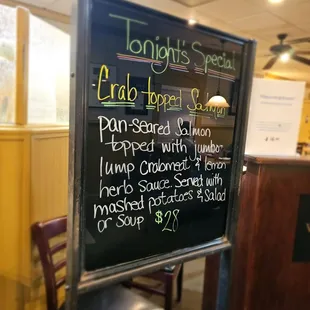 Tonight's Special
Crab topped Salmon
pan-seared Salmon
topped with jumbo
lump crabmeat & lemon
herb sauce. Served with
mashed potatoes & Salad
or Soup $28